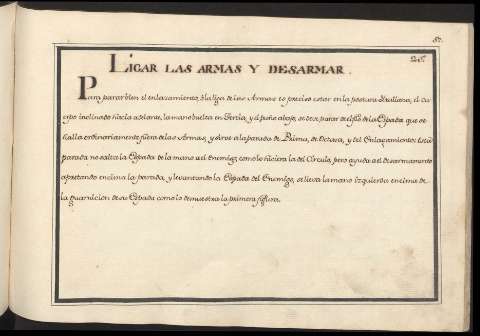 87.
26.
LIGAR LAS ARMAS Y DESARMAR.
Para parar bien el enlazamiento, ò la liga de las Armas es preciso estar en la postura Italiana, el cu-
erpo inclinado hacia adelante, la mano buelta en Tercia, y el puño abajo, se deve parar del filo de la Espada que se
halla ordinariamente fuera de las Armas, y sirve à la parada de Prima, de Octava, y del Enlazamiento: Esta
parada no saltea la Espada de la mano a el Enemigo como lo hiciera la del Circulo, pero ayuda a el desarmamento
apretando encima la parada, y levantando la Espada del Enemigo, se lleva la mano izquierda encima de
la guarnicion de su Espada como lo demuestra la primera figura.